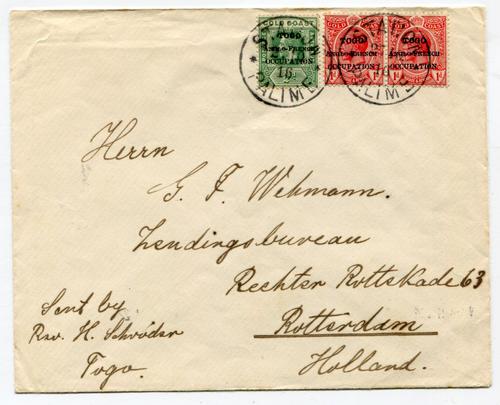 GOLD COAST
TOGO
ANGLO-FRENCH
OCCUPATION
TOGO
ANGLO-FRENCH
OCCUPATION
1d
1d
TOGO
ANGLO-FRENCH
OCCUPATION
1d
16
PALIME
PALIME
Herrn
G. F. Wehmann.
Zendingsbureau
Rechter Rottekade 63
Rotterdam
Holland.
Sent by
Rev. H. Schröder
Togo.